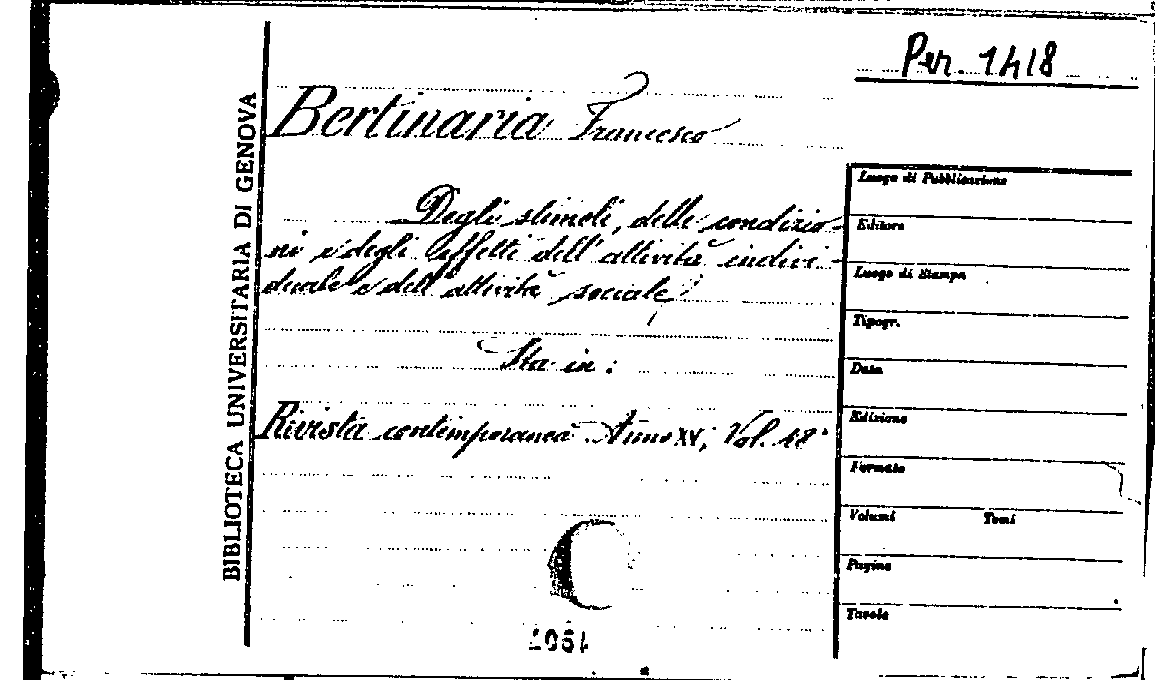 Per. 1418
BIBLIOTECA UNIVERSITARIA DI GENOVA
Bertinaria Francesco
Degli stimoli, delle condizio-
ni e degli effetti dell'attività indivi-
duale e dell'attività sociale
Sta in:
Rivista contemporanea Anno XV, Vol. 48°
Luogo di Pubblicazione
Editore
Luogo di Stampa
Tipogr.
Data
Edizione
Formato
Volumi Tomi
Pagine
Tavole